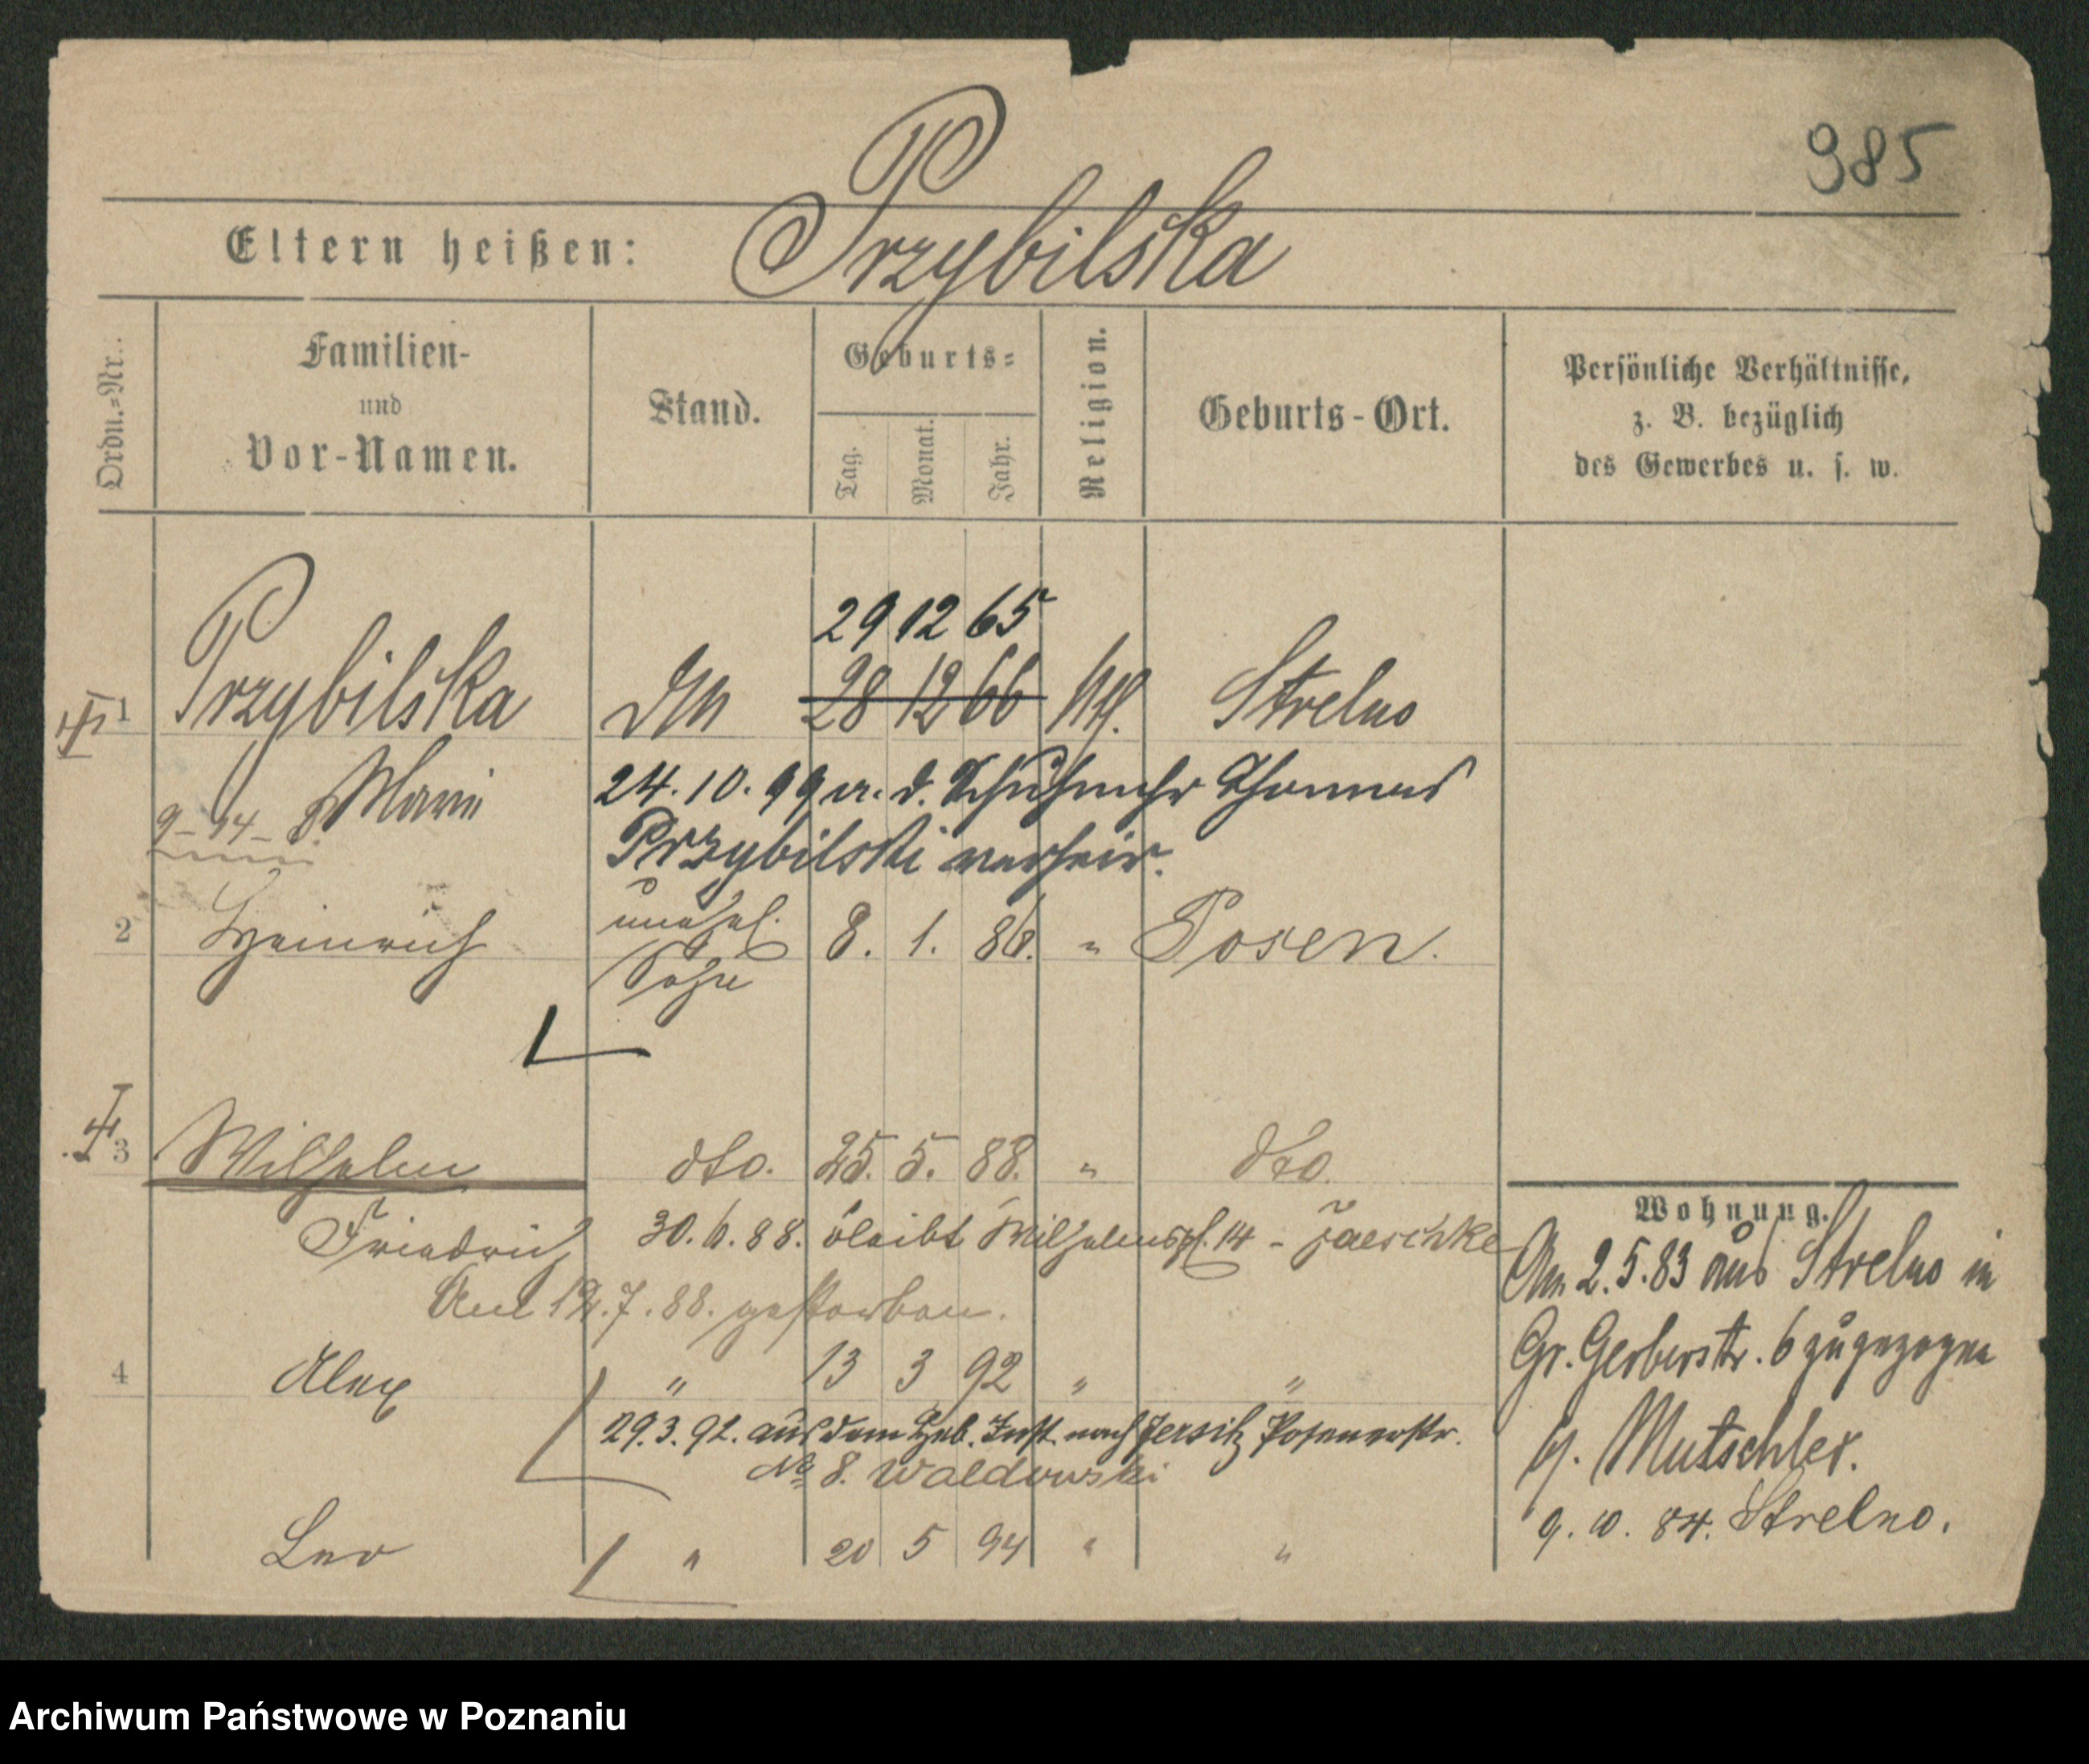 985
Eltern heißen: Przybilska
Ordn.=Nr.
Familien-
und
Vor-Namen.
Stand.
Geburts=
Tag.
Monat.
Jahr.
Religion.
Geburts-Ort.
Persönliche Verhältnisse,
z. B. bezüglich
des Gewerbes u. s. w.
29 12 65
1 Przybilska 28 12 66 Strelno
Marie
24. 10. 99 m. d. Schuhmchr Thomas
9-14-8
Przybilski verheir.
2 Heinrich unehel. 8. 1. 86. " Posen.
Sohn
3 Wilhelm dto. 25. 5. 88. " dto.
Friedrich 30. 6. 88. bleibt Wilhelmspl. 14 - Jaeschke
Am 12. 7. 88. gestorben.
4 Alex " 13 3 92 " "
29. 3. 92. aus dem Heb. Inst. nach Jersitz Posenerstr.
No 8. Waldowski
Leo " 20 5 94 " "
Wohnung.
Am 2.5.83 aus Strelno in
Gr. Gerberstr. 6 zugezogen
Mutschler.
9. 10. 84. Strelno.
Archiwum Państwowe w Poznaniu